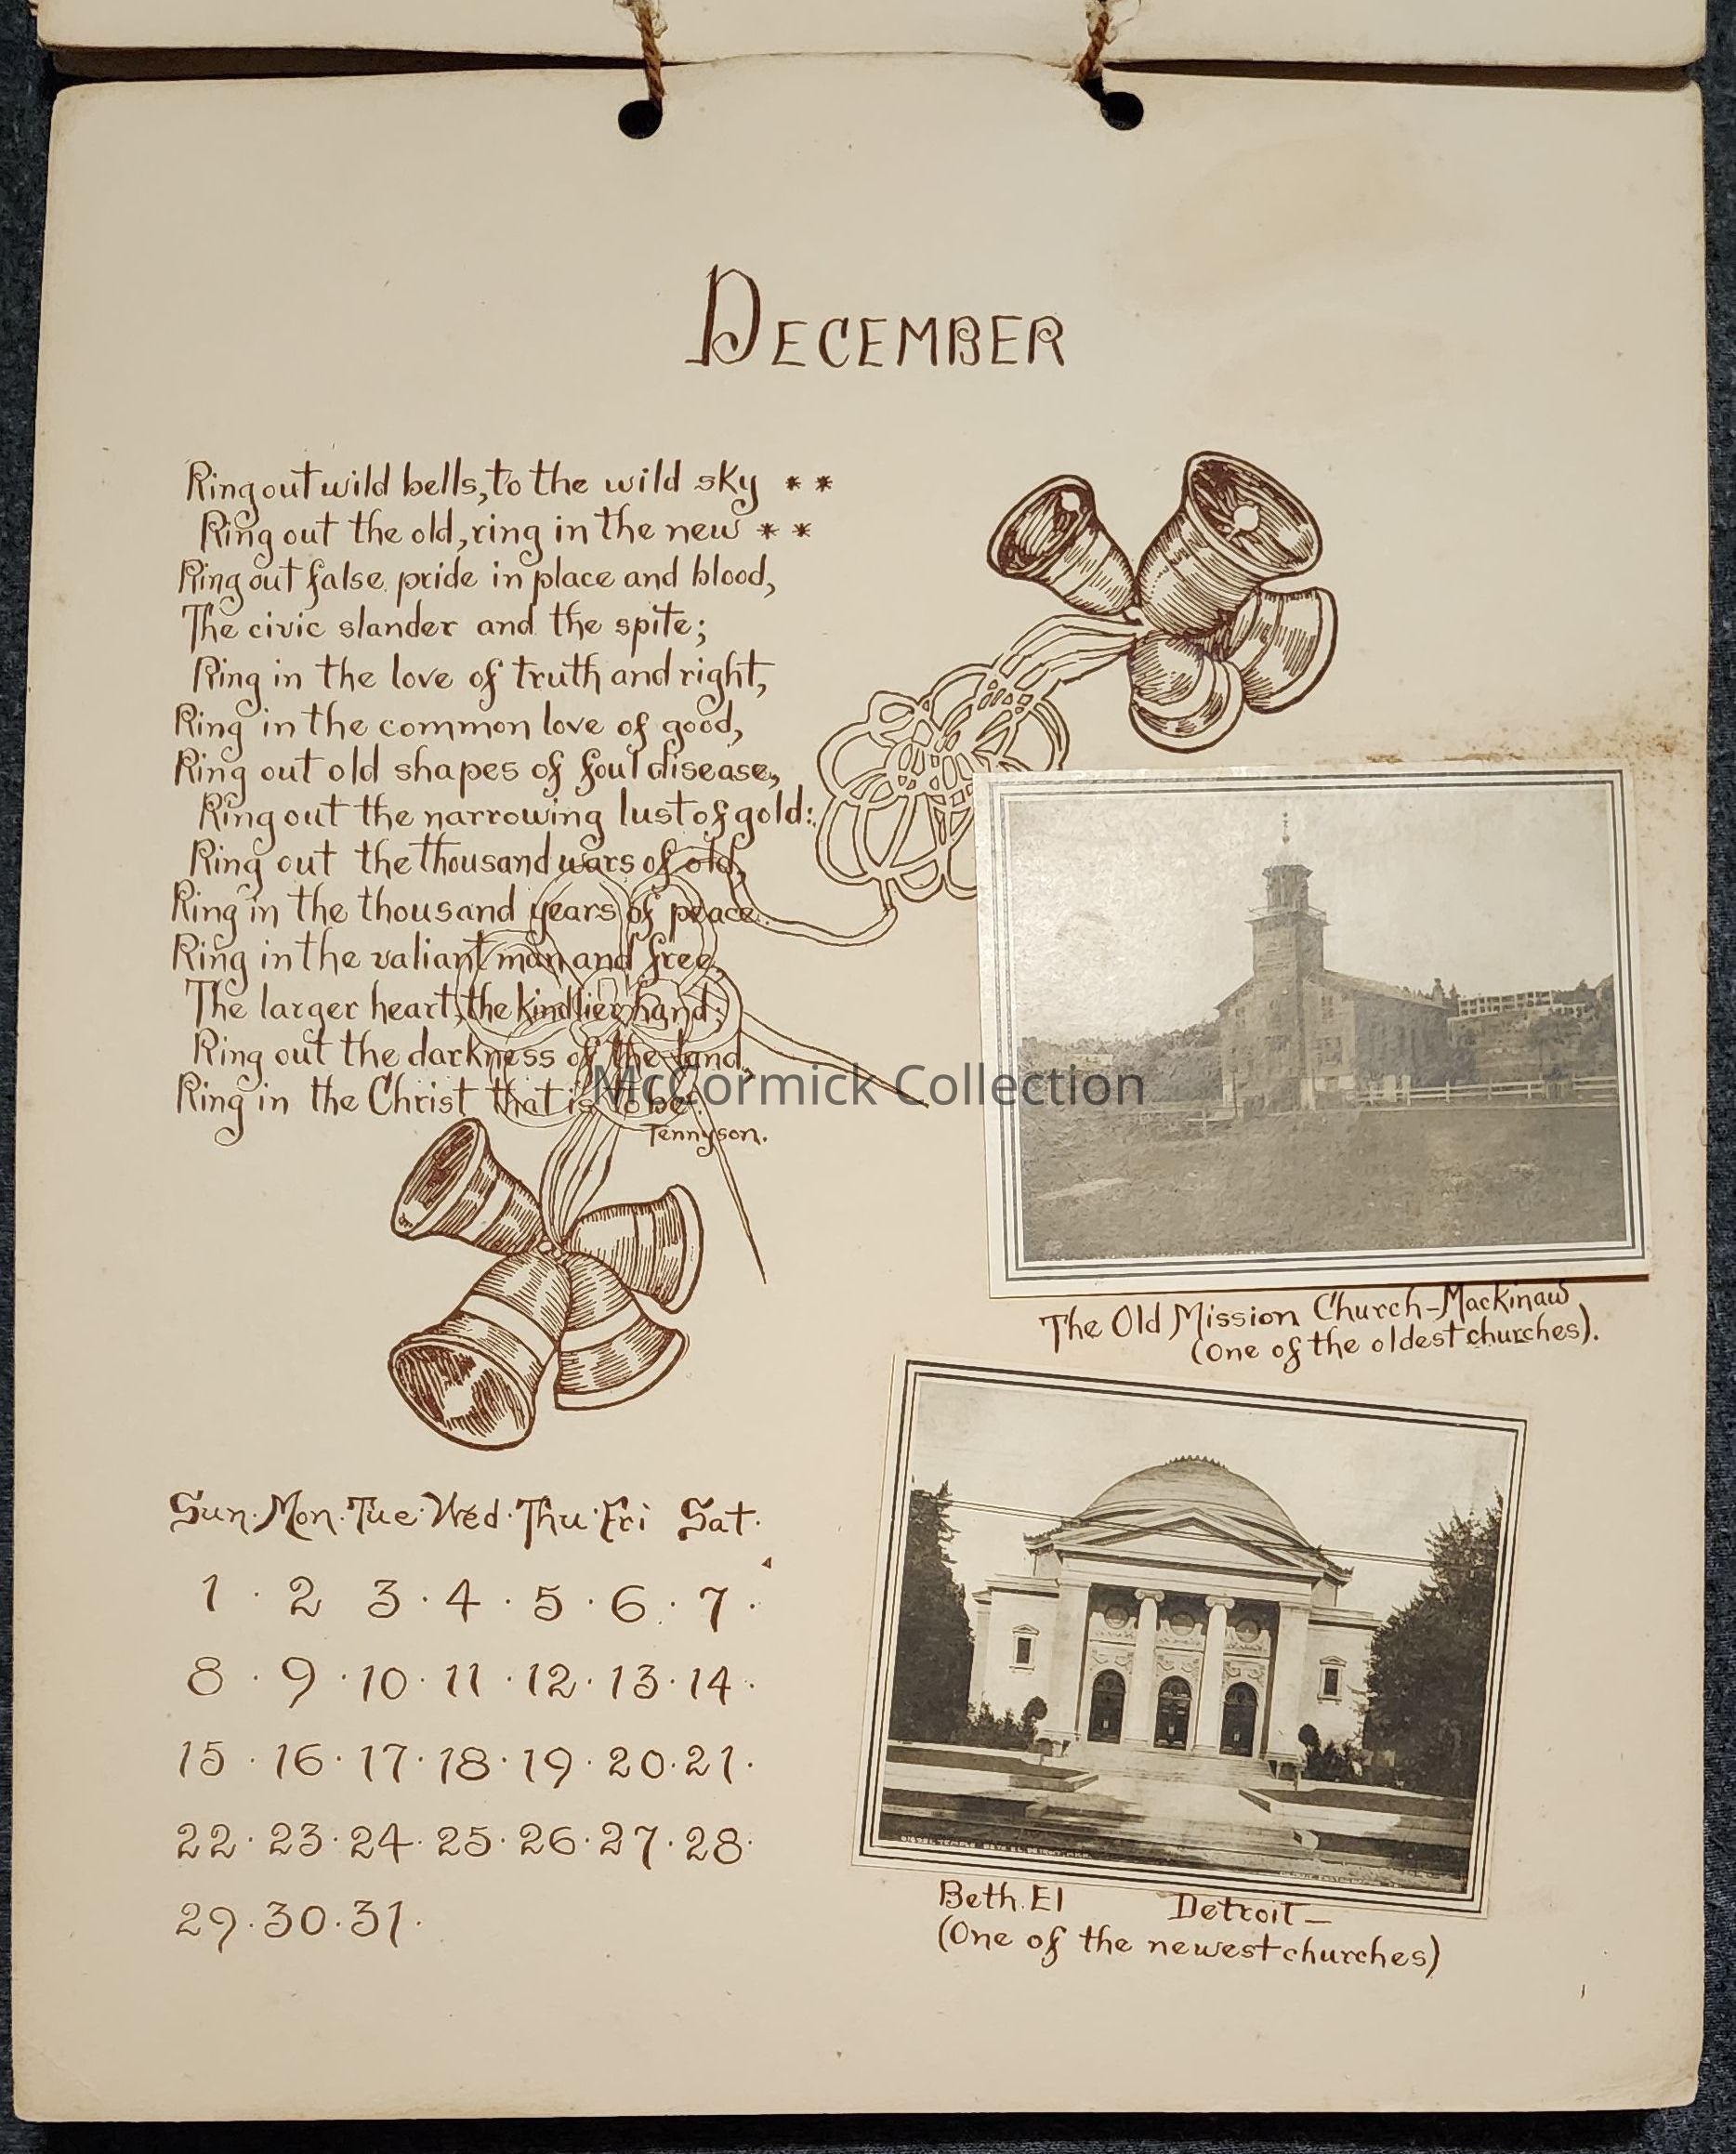 DECEMBER
Ring out wild bells, to the wild sky * *
Ring out the old, ring in the new * *
Ring out false pride in place and blood,
The civic slander and the spite;
Ring in the love of truth and right,
Ring in the common love of good,
Ring out old shapes of foul disease,
Ring out the narrowing lust of gold:
Ring out the thousand wars of old,
Ring in the thousand years of peace.
Ring in the valiant man and free,
The larger heart, the kindlier hand;
Ring out the darkness of the land,
Ring in the Christ that is to be.
Tennyson.
McCormick Collection
The Old Mission Church-Mackinaw
(One of the oldest churches).
Sun. Mon. Tue. Wed. Thu. Fri Sat.
1 · 2 3 · 4 · 5 · 6 · 7 ·
8 · 9 · 10 · 11 · 12 · 13 · 14 ·
15 · 16 · 17 · 18 · 19 · 20 · 21 ·
22 · 23 · 24 · 25 · 26 · 27 · 28 ·
29 · 30 · 31 ·
TEMPLE BETH EL DETROIT, MICH.
Beth. El Detroit—
(One of the newest churches)